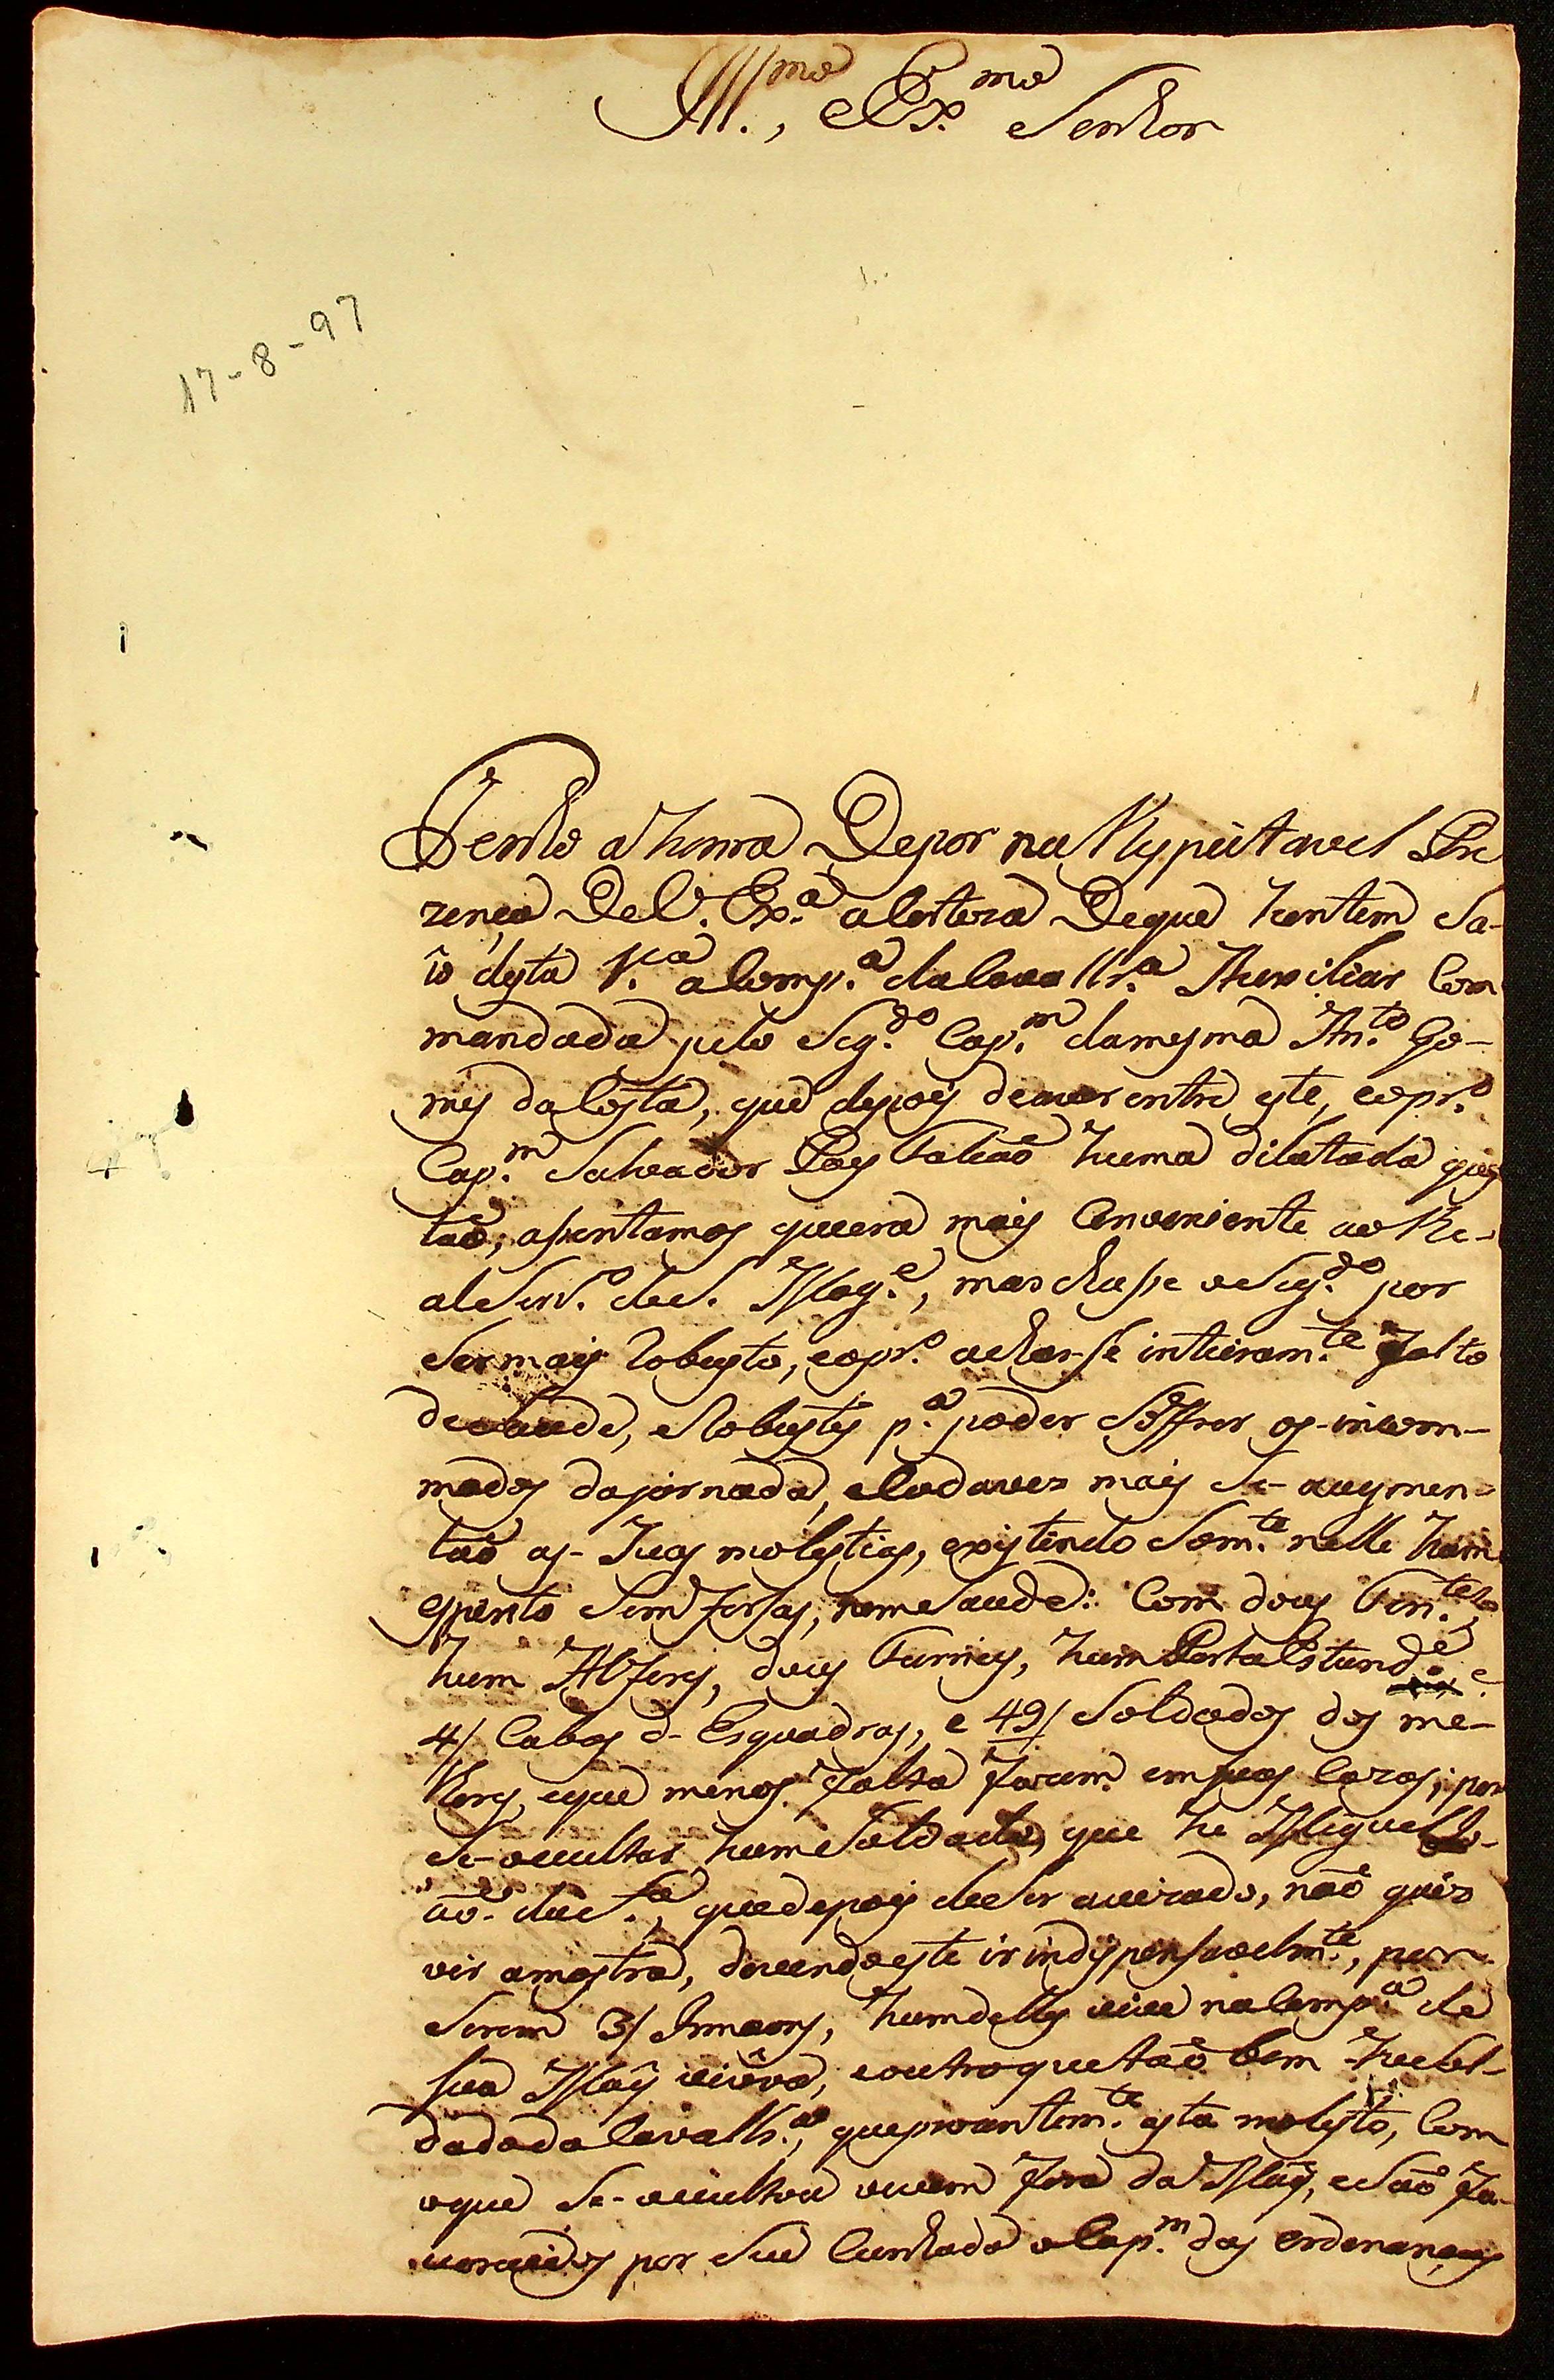 Ill.mo, e Ex.mo Senhor
17-8-97
Tenho a honra De por na Respeitavel Pre
zença De V. Ex.a a certeza De que hontem Sa-
îo desta V.a a Comp.a da Cavallr.a Auxiliar Com
mandada pelo Seg.do Cap.m da mesma An.to Go-
mes da Costa, que depois de aver entre este, e o pr.o
Cap.m Salvador Paes Falcaõ huma dilatada ques
taõ; asentamos que era mais Conveniente ao Re-
al Serv.o de S. Mag.e, marchasse o Seg.do por
Ser mais Robusto, e o pr.o achar-se inteiram.te falto
de Saude, e Robustes p.a poder Soffrer os incom-
modos da jornada, e Cada vez mais Se- augmen-
taõ as Suas molestias, existindo Som.te nelle hum
esperito Sem forsas, nem Saude: Com dous Ten.tes,
hum Alferes, dous Furrieis, hum Porta Estand.e e
4/ Cabos d- Esquadras, e 49/ Soldados dos me-
lhores, e que menos falta fazem em suas Cazas; por
Se-ocultar hum Soldado, que he Miguel Jo-
aõ de S.a, que depois de Ser avizado, naõ quis
vir amostra, devendo este ir indispensavelm.te, por
Serem 3/ Irmaons, hum delles vive na Comp.a de
sua Mãy viuva, e outro que taõ bem he Sol-
dado da Cavallr.a, que prezentem.te esta molesto, Com
o que Se-ocultou vivem fora da Mãy, e Saõ fa-
vorecidos por Seu Cunhado o Cap.m das Ordenanças